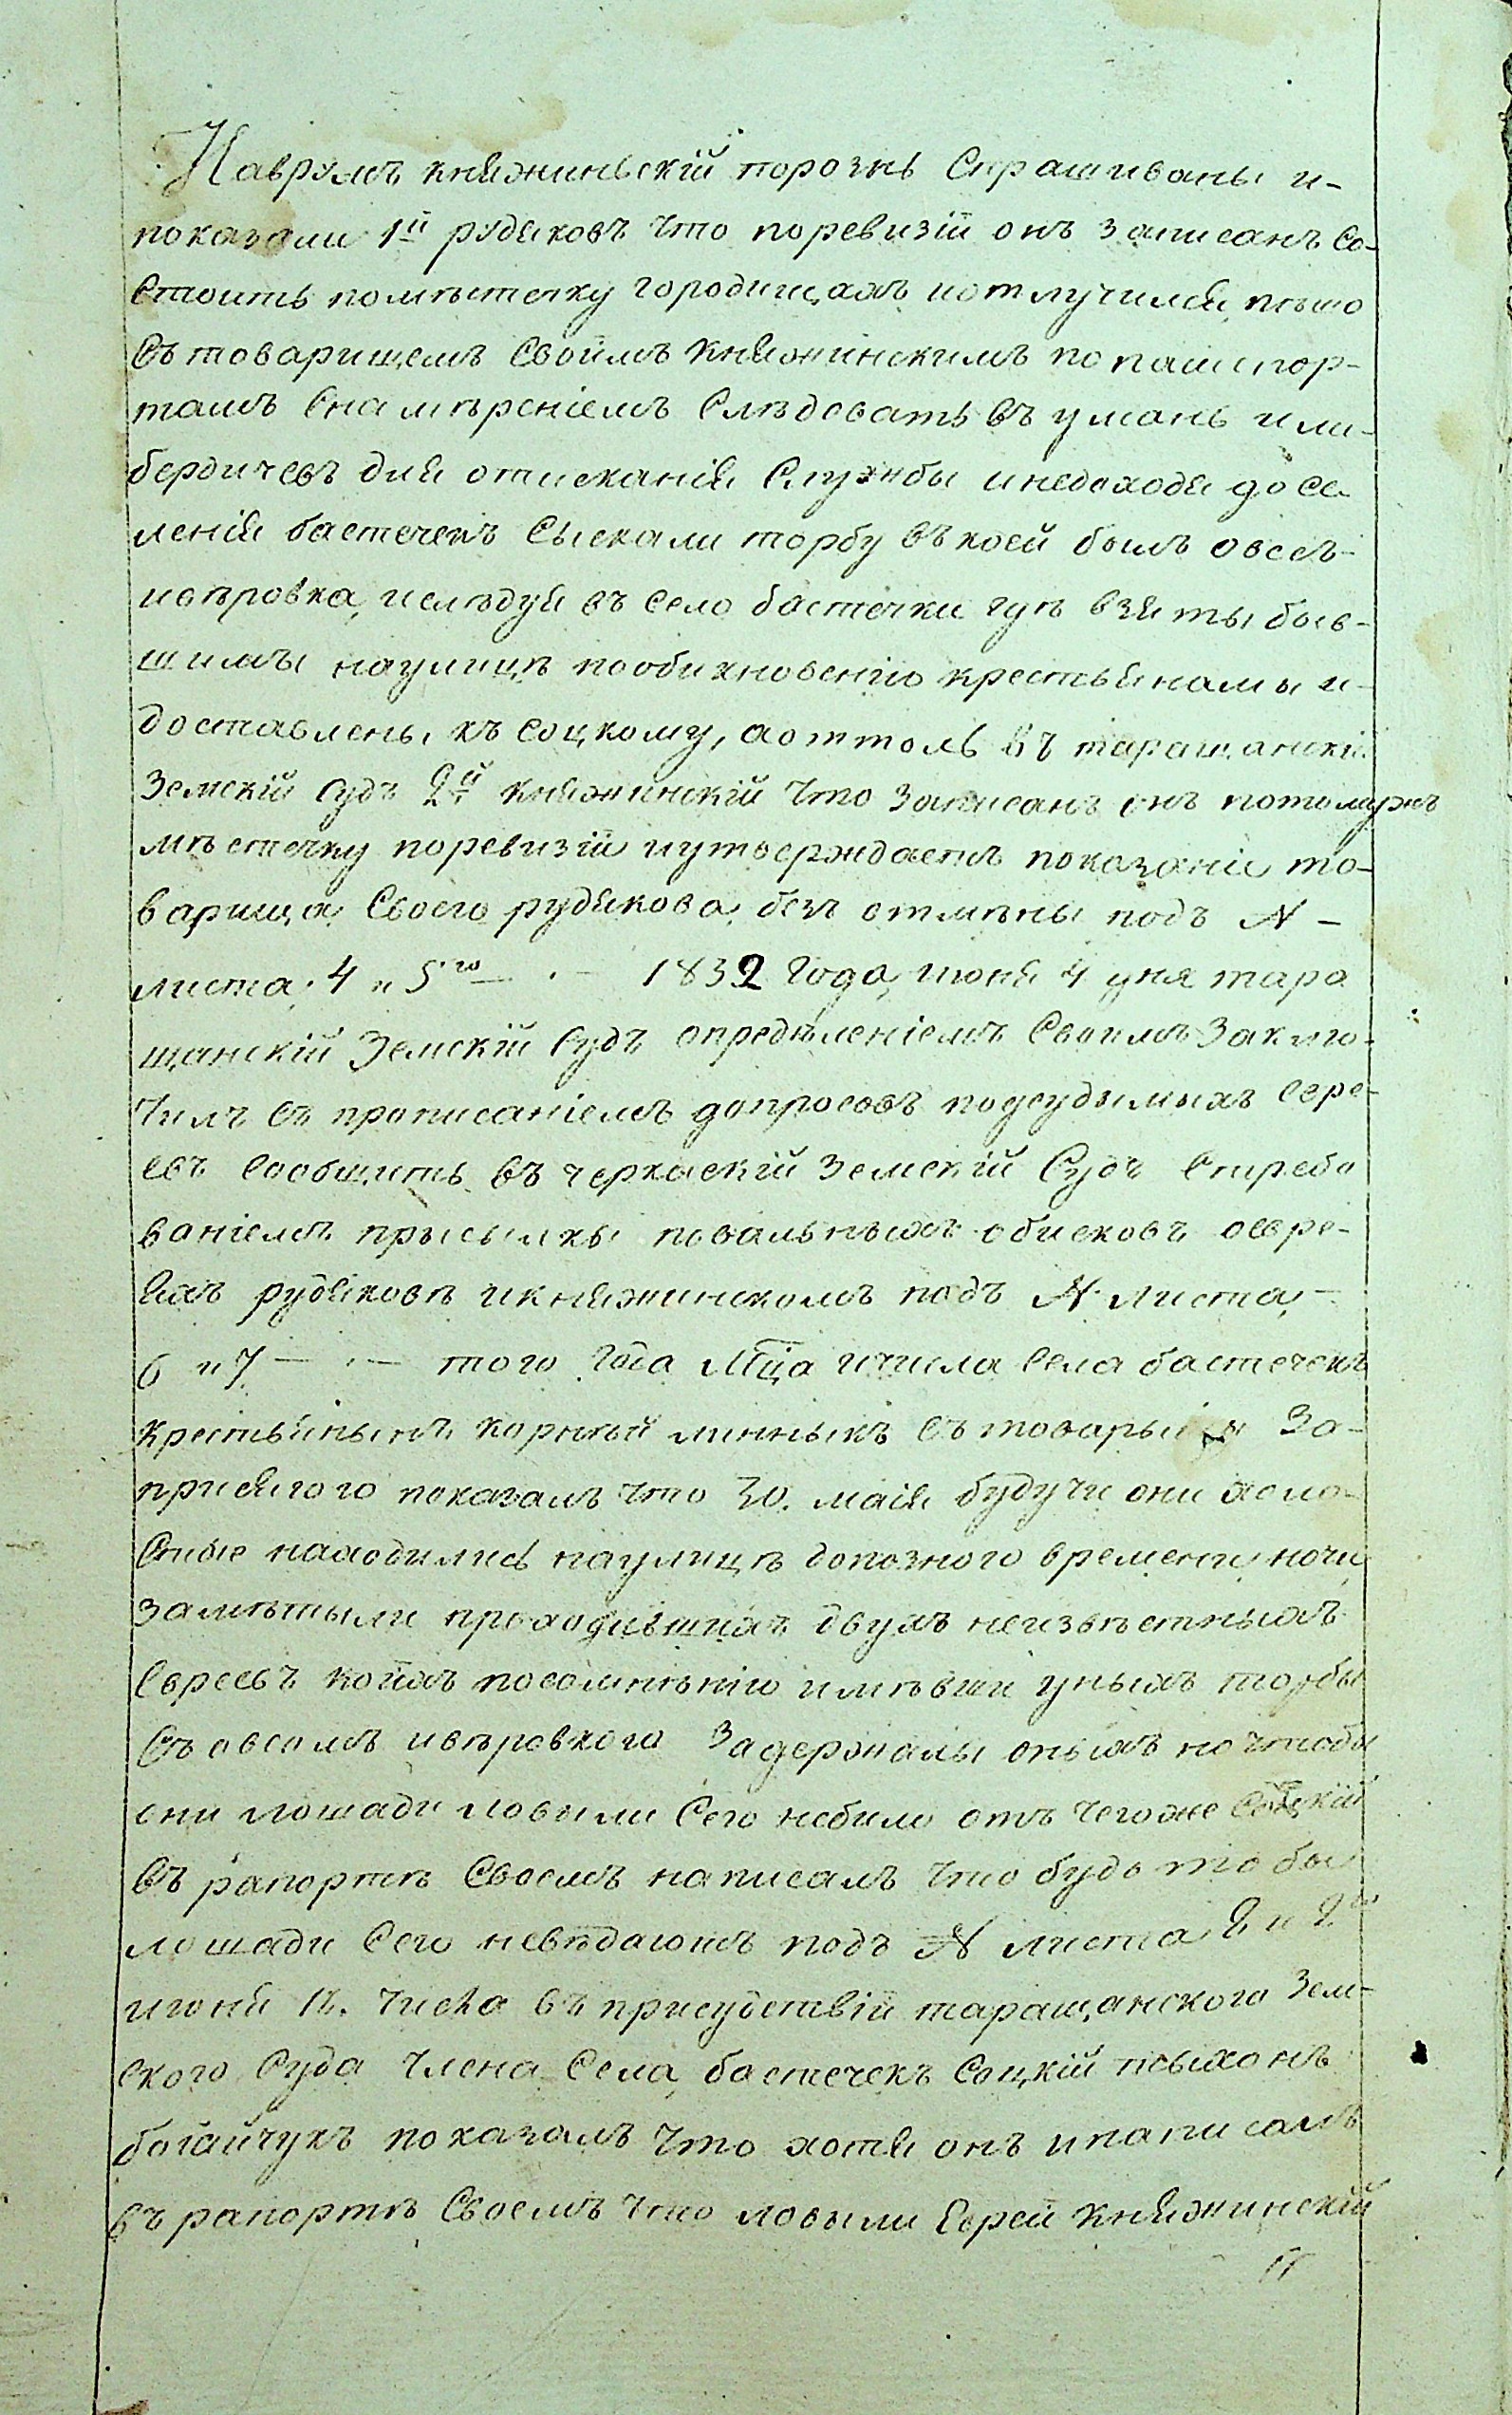 Наврумъ княжиньскій порознь Спрашиваны и-
показали 1й рудяковъ что поревизій онъ записанъ Со-
Стоитъ поместечку городищамъ иотлучился пешо
Съ товарищемъ Своимъ Княжинскимъ по пашпор-
тамъ Снамѣреніемъ Слѣдовать въ умань или-
бердичевъ для отисканія Службы инедоходя до се-
ленія бастечекъ Сыскали торбу въ коей былъ овесъ-
ивѣровка, ислѣдуя въ село бастечки тутъ взяты быв-
шимы наулицѣ пообикновенію крестьянамы и-
доставлены къ Соцкому, аоттоль въ таращанскій
Земскій Судъ 2й Княжинскій что Записанъ онъ потомужъ
мѣстечку поревизій иутверждаетъ показаніе то-
варища Своего рудякова безъ отмѣны подъ N -
листа 4 и 5го — · — 1832 Года июня 4 дня тара
щанскій Земскій Судъ опредѣленіемъ Своимъ Заклю-
чилъ Съ прописаніемъ допросовъ подсудымыхъ Евре-
евъ Сообщить въ черкаскій Земскій Судъ Стребо
ваніемъ присылкы повальныхъ обисковъ оевре-
яхъ рудяковѣ икняжинскомъ подъ N листа -
6 и 7 — · — того Года Мца ичисла Села бастечекъ
Крестьянынъ корнѣй линныкъ Съ товарыщи За-
присягого показалъ что 30. маія будучи они
нааодились наулицѣ допозного времени ночи
Замѣтыли проходившихъ двухъ неизвѣстныхъ
Евреевъ коихъ посомнѣнію имѣвши уныхъ торбы
Съ овсомъ ивѣровкого Задержалы оныхъ но чтобы
они лошади ловили Сего небило отъ чегоже Соцкій
Въ рапортѣ Своемъ написалъ что будьто бы
лошади Сего невѣдаютъ подъ N листа 2 и 2
июня 12. числа въ присудствій таращанского Зем-
ского Суда члена Села бастечекъ Соцкій тыхонъ
богайчукъ показалъ что хотя онъ инаписалъ
въ рапортѣ Своемъ что ловыли Еврей Княжинскій